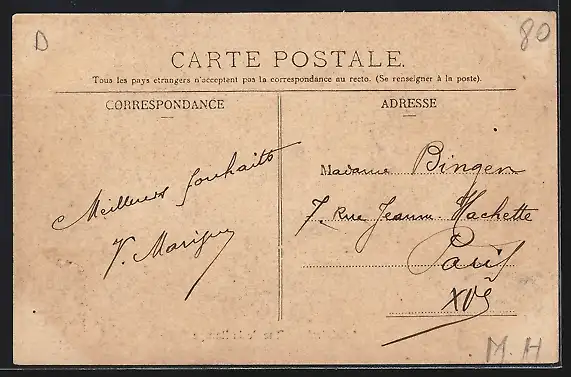 D
80
CARTE POSTALE.
Tous les pays etrangers n'acceptent pas la correspondance au recto. (Se renseigner à la poste).
CORRESPONDANCE
ADRESSE
Meilleurs souhaits
Madame Bingen
7. Rue Jeanne-Hachette
Paris
XVe
M. H